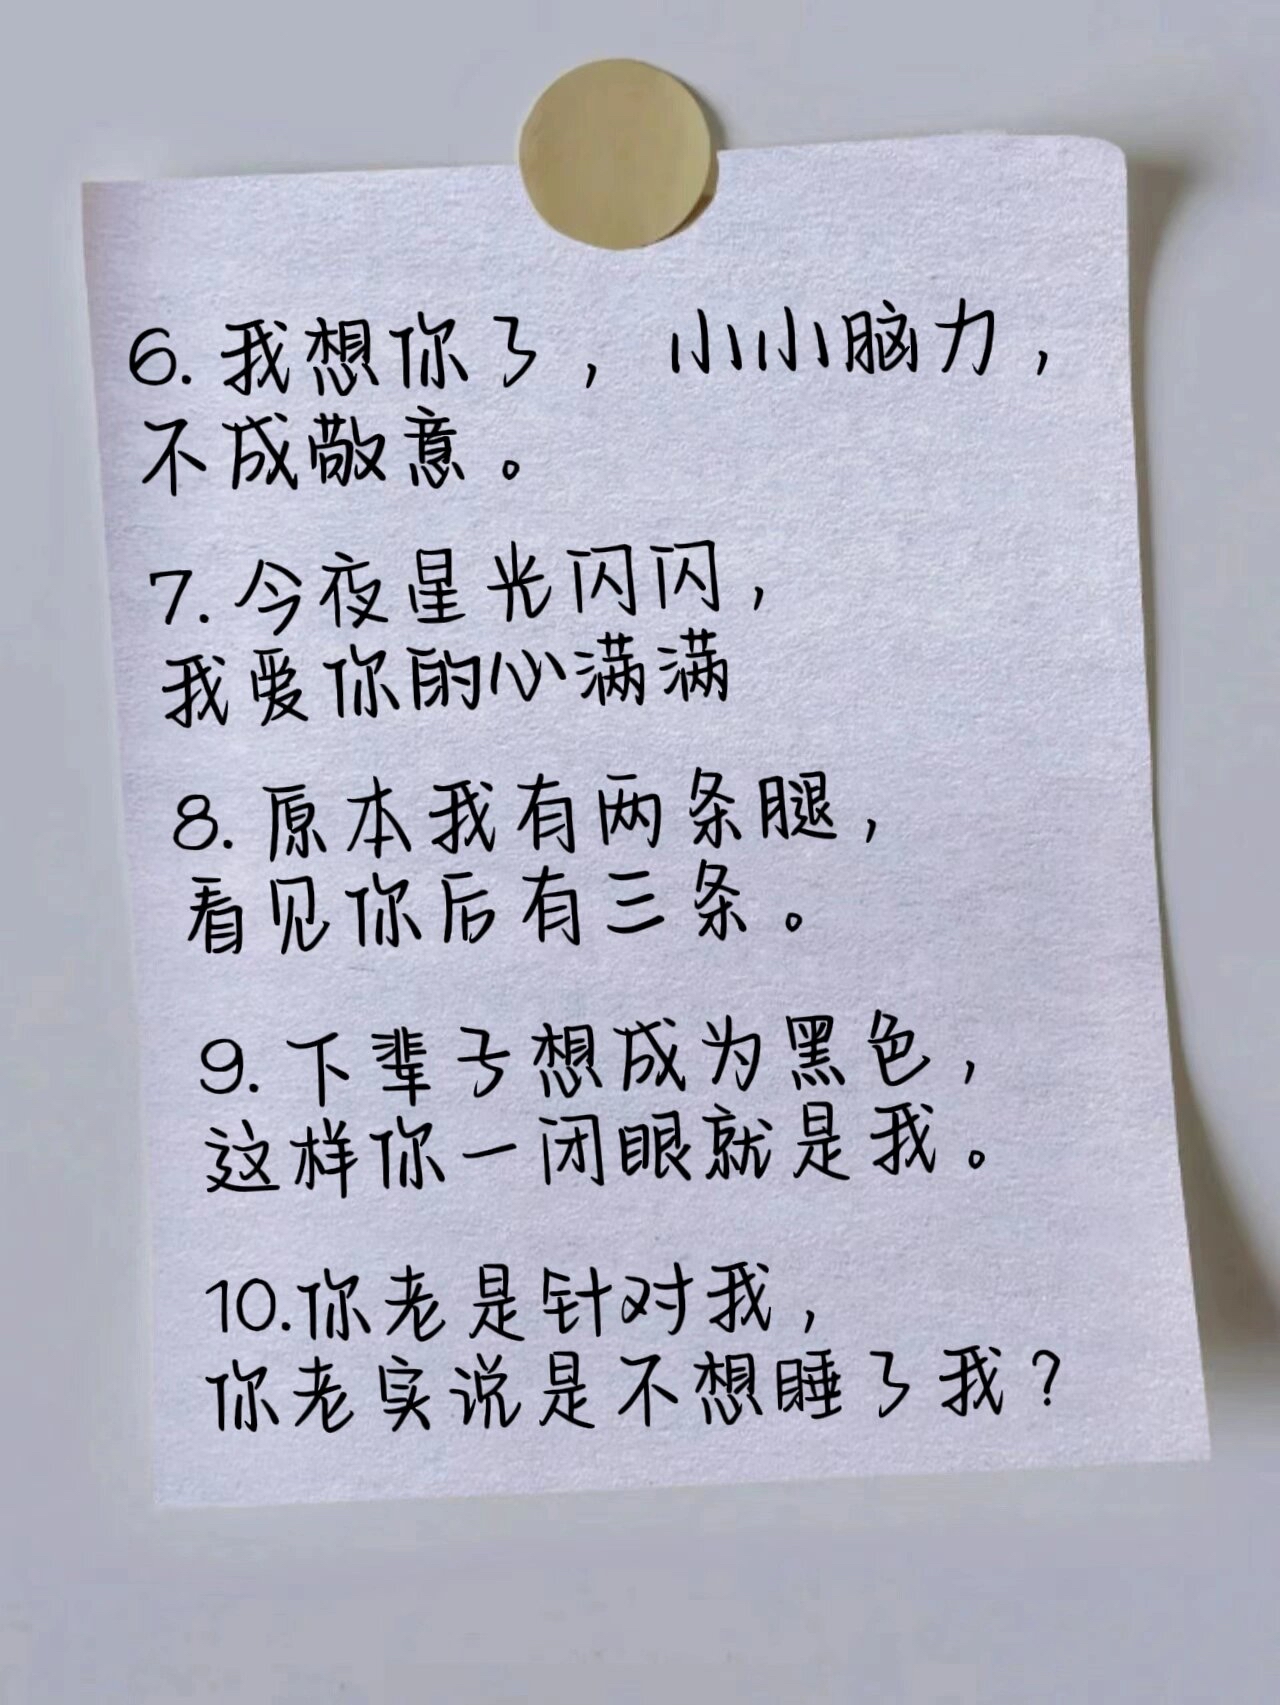 6. 我想你了，小小脑力，
不成敬意。
7. 今夜星光闪闪，
我爱你的心满满
8. 原本我有两条腿，
看见你后有三条。
9. 下辈子想成为黑色，
这样你一闭眼就是我。
10.你老是针对我，
你老实说是不想睡了我？